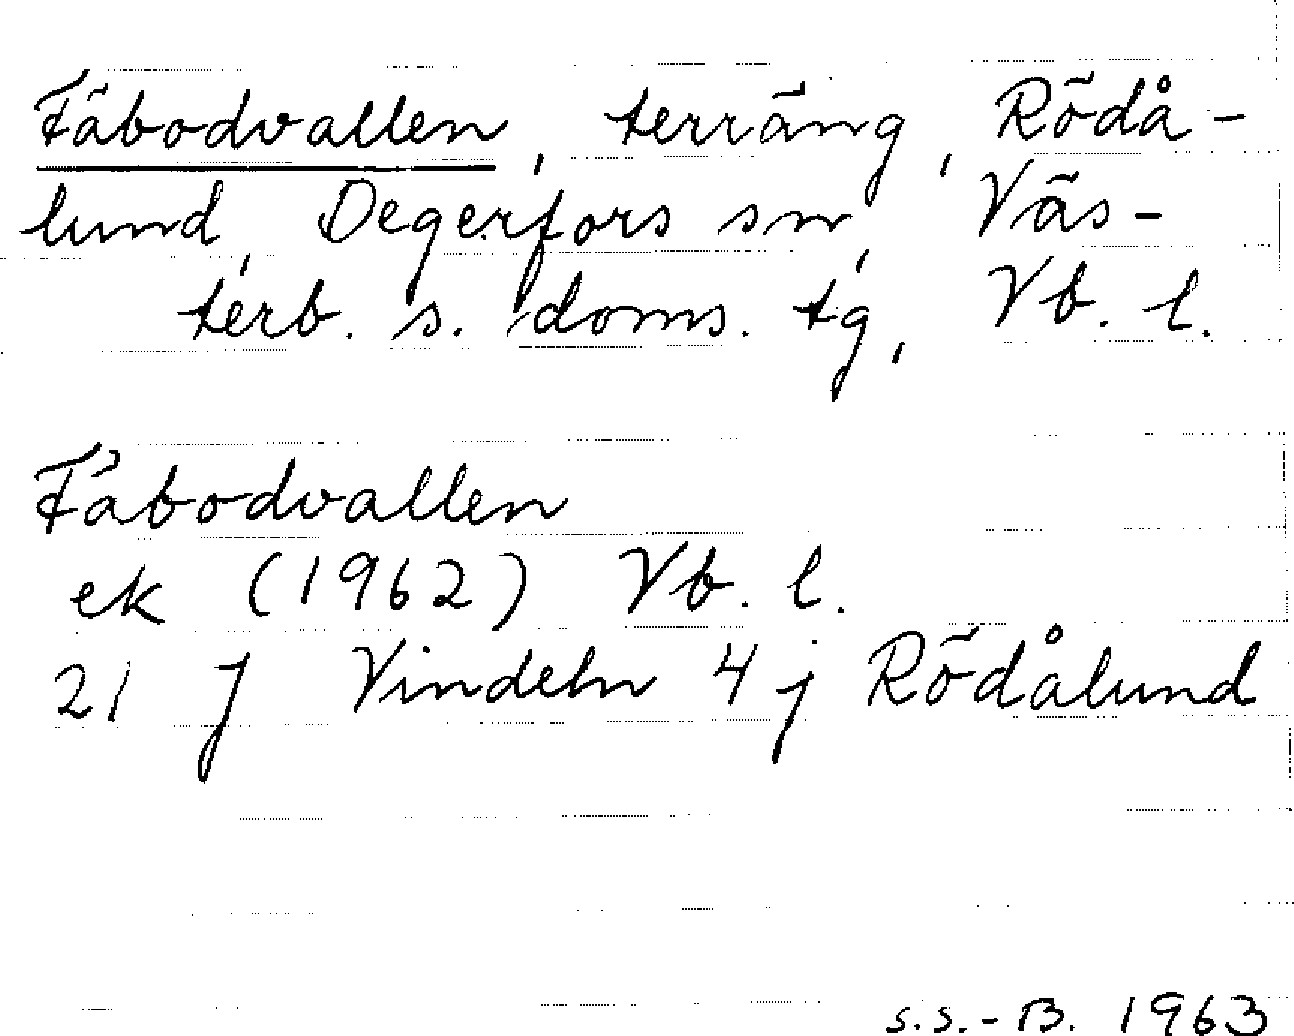 Fäbodvallen, terräng, Rödå-
lund, Degerfors sn, Väs-
terb. s. doms. tg, Vb. l.
Fäbodvallen
ek (1962) Vb. l.
21 J Vindeln 4 j Rödålund
s.s.-B. 1963